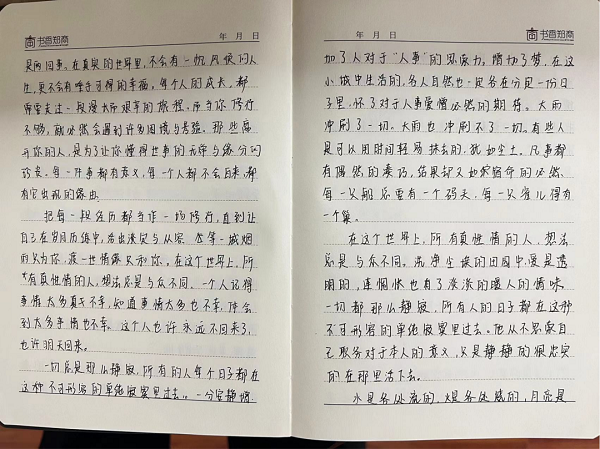 书香知商
年 月 日
是两回事。在真实的世界里,不会有一帆风顺的人
生,更不会有唾手可得的幸福,每个人的成长,都
需要走过一段漫长而艰辛的旅程。而当你修行
不够,就必然会遇到许多困境与是强。那些离
开你的人,是为了让你懂得世事的无常与缘分的
珍贵。每一件事都有意义,每一个人都不会白来,都
有它出现的缘由。
把每一段经历都当作一场修行,直到让
自己在岁月历练中,活出淡定与从容
只为你,疼一世情缘只和你。在这个世界上,所
有真性情的人,想法总是与众不同。一个人记得
事情太多真不幸,知道事情太多也不幸,体会
到太多事情也不幸。这个人也许永远不回来了,
也许明天回来。
一切总是那么静寂,所有的人每个日子都在
这种不可形容的单纯寂寞里过去。一分安静增
书香知商
年 月 日
加了人对于“人事”的思索力,增加了梦。在这
小城中生活的,各人自然也一定各在分定一份日
子里,怀了对于人事爱憎必然的期待。大雨
冲刷了一切。大雨也冲刷不了一切。有些人
是可以用时间轻易抹去的,犹如尘土。凡事都
有偶然的凑巧,结果却又如宿命的必然。
每一只船总要有一个码头,每一只雀儿得有
一个巢。
在这个世界上,所有真性情的人,想法
总是与众不同。洗净尘埃的田园中,爱是透
明的,连惆怅也有了淡淡的暖人的情味。
一切都那么静寂,所有人的日子都在这种
不可形容的单纯寂寞里过去。他从不思索自
己职务对于本人的意义,只是静静的很忠实
的在那里活下去。
水是各处流的,火是各处烧的,月亮是